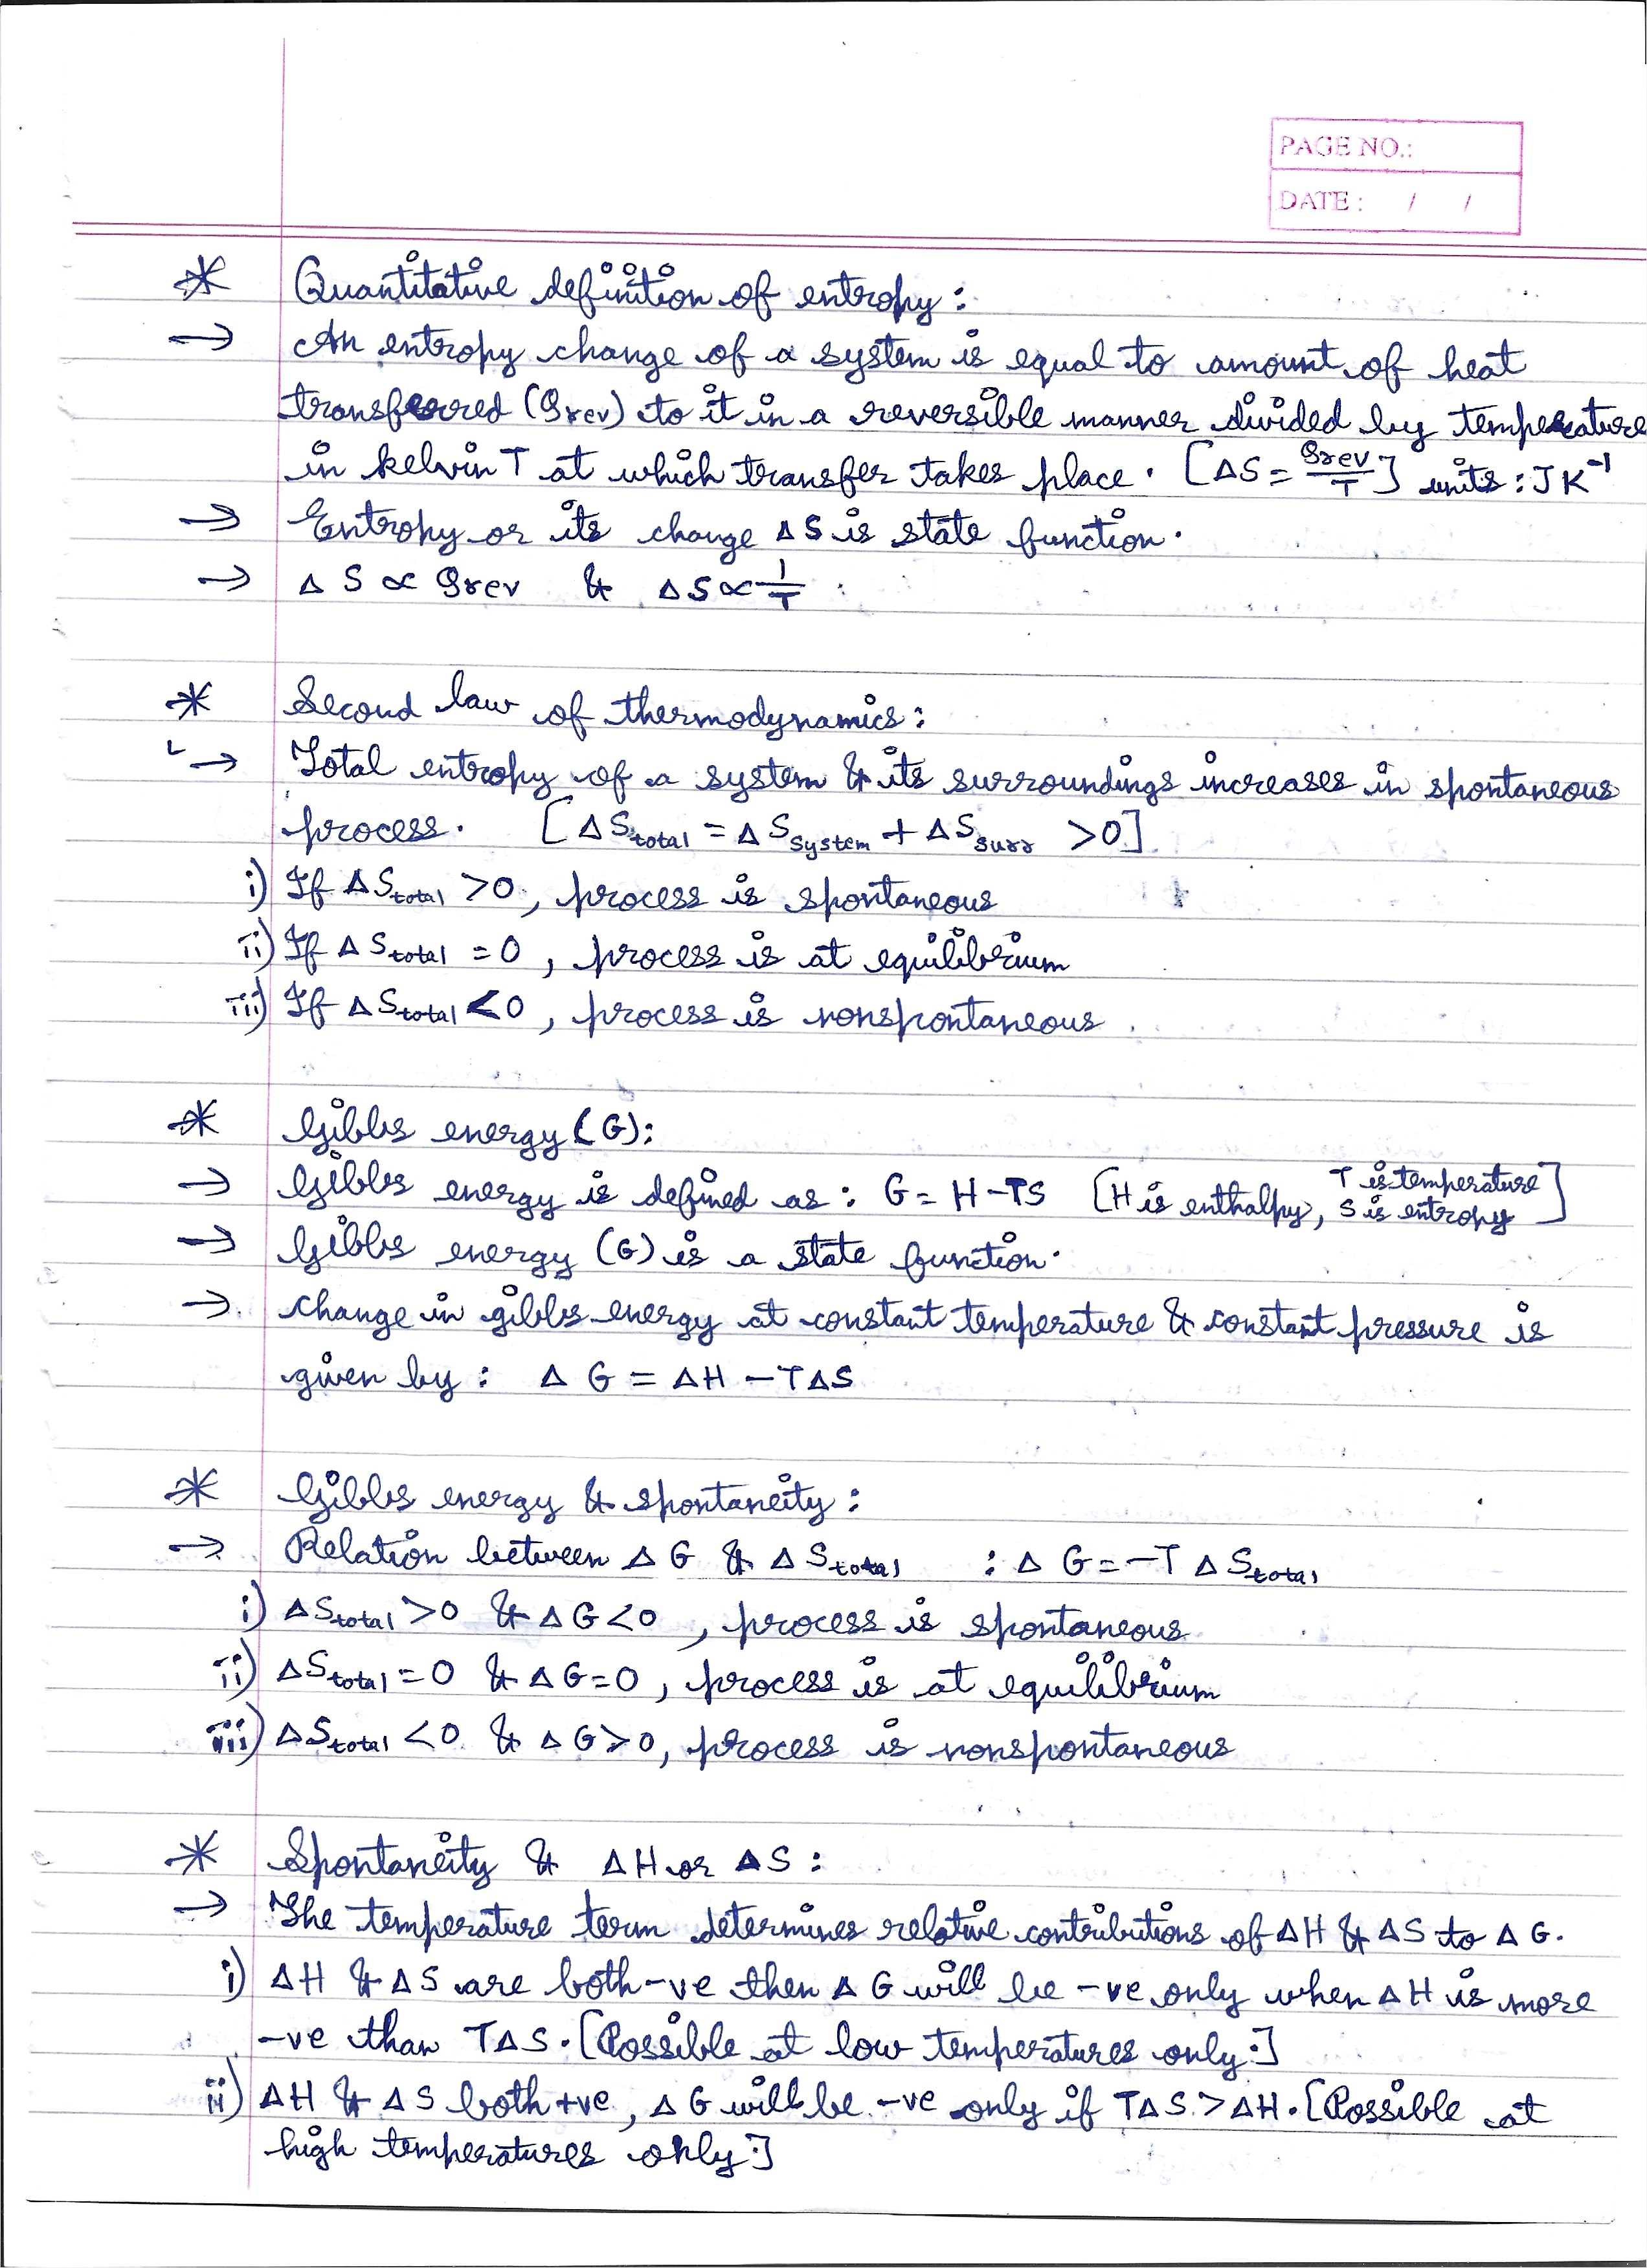 PAGE NO.:
DATE : / /
* Quantitative definition of entropy :
→ An entropy change of a system is equal to amount of heat
transferred (Qrev) to it in a reversible manner divided by temperature
in kelvin T at which transfer takes place. [ΔS = Qrev/T] units : J K⁻¹
→ Entropy or its change ΔS is state function.
→ ΔS ∝ Qrev & ΔS ∝ 1/T
* Second law of thermodynamics :
→ Total entropy of a system & its surroundings increases in spontaneous
process. [ΔS total = ΔS system + ΔS surr > 0]
i) If ΔS total > 0, process is spontaneous
ii) If ΔS total = 0, process is at equilibrium
iii) If ΔS total < 0, process is nonspontaneous
* Gibbs energy (G):
→ Gibbs energy is defined as : G = H - TS [H is enthalpy, T is temperature S is entropy]
→ Gibbs energy (G) is a state function.
→ change in gibbs energy at constant temperature & constant pressure is
given by : ΔG = ΔH - TΔS
* Gibbs energy & spontaneity :
→ Relation between ΔG & ΔS total : ΔG = -T ΔS total
i) ΔS total > 0 & ΔG < 0, process is spontaneous
ii) ΔS total = 0 & ΔG = 0, process is at equilibrium
iii) ΔS total < 0 & ΔG > 0, process is nonspontaneous
* Spontaneity & ΔH or ΔS :
→ The temperature term determines relative contributions of ΔH & ΔS to ΔG.
i) ΔH & ΔS are both -ve then ΔG will be -ve only when ΔH is more
-ve than TΔS. [Possible at low temperatures only.]
ii) ΔH & ΔS both +ve, ΔG will be -ve only if TΔS > ΔH. [Possible at
high temperatures only.]